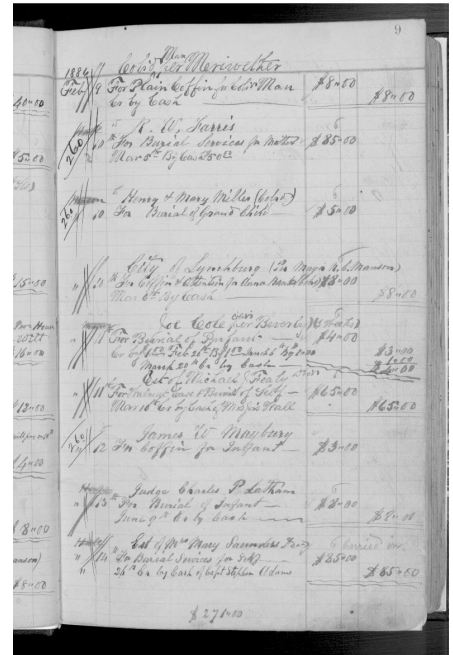 9
1886 Col'd Man per Meriwether
Feb 9 For Plain Coffin for Col'd Man $8.00
Cr by Cash $8.00
R. W. Farris
260 10 For Burial Services for $85.00
Mar 5th By Cash $50.00
Henry & Mary Miller (Col'd)
260 10 For Burial of Grand Child $5.00
City of Lynchburg (Per Mayor N. C. Manson)
For Coffin & Attention for Anna $8.00
Mar 6th By Cash $8.00
Joe Cole per Beverly
11 For Burial of Infant $4.00
Cr by Feb 20th By $3.00
March 20th Cr by Cash 1.00
$4.00
Est of Michael Featy
11th For Walnut Case & Burial of Self $65.00
Mar 10th Cr by Cash of Hall $65.00
James W Maybury
260 12 For Coffin for Infant $3.00
Judge Charles P. Latham
" 13th For Burial of Infant $8.00
June 9th Cr by Cash $8.00
Est of Mrs Mary Saunders
" 14 For Burial Services for Self $85.00
" 24th Cr by Cash of Capt Stephen Adams $85.00
$271.00
40.00
$5.00
$15.00
16.00
$12.00
$4.00
$8.00
$8.00